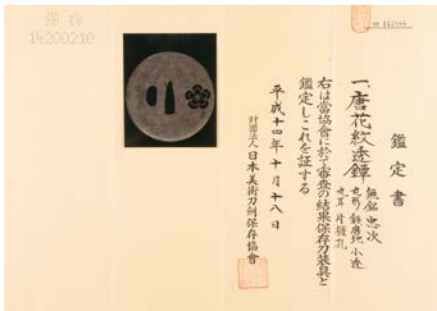 鑑定書
一、唐花紋透鐔
無銘 忠次
丸形 鉄磨地 小透
丸耳 片櫃孔
右は當協會に於て審査の結果保存刀装具と
鑑定しこれを証する
平成十四年十月十八日
財團法人 日本美術刀剣保存協會
保存
14200210